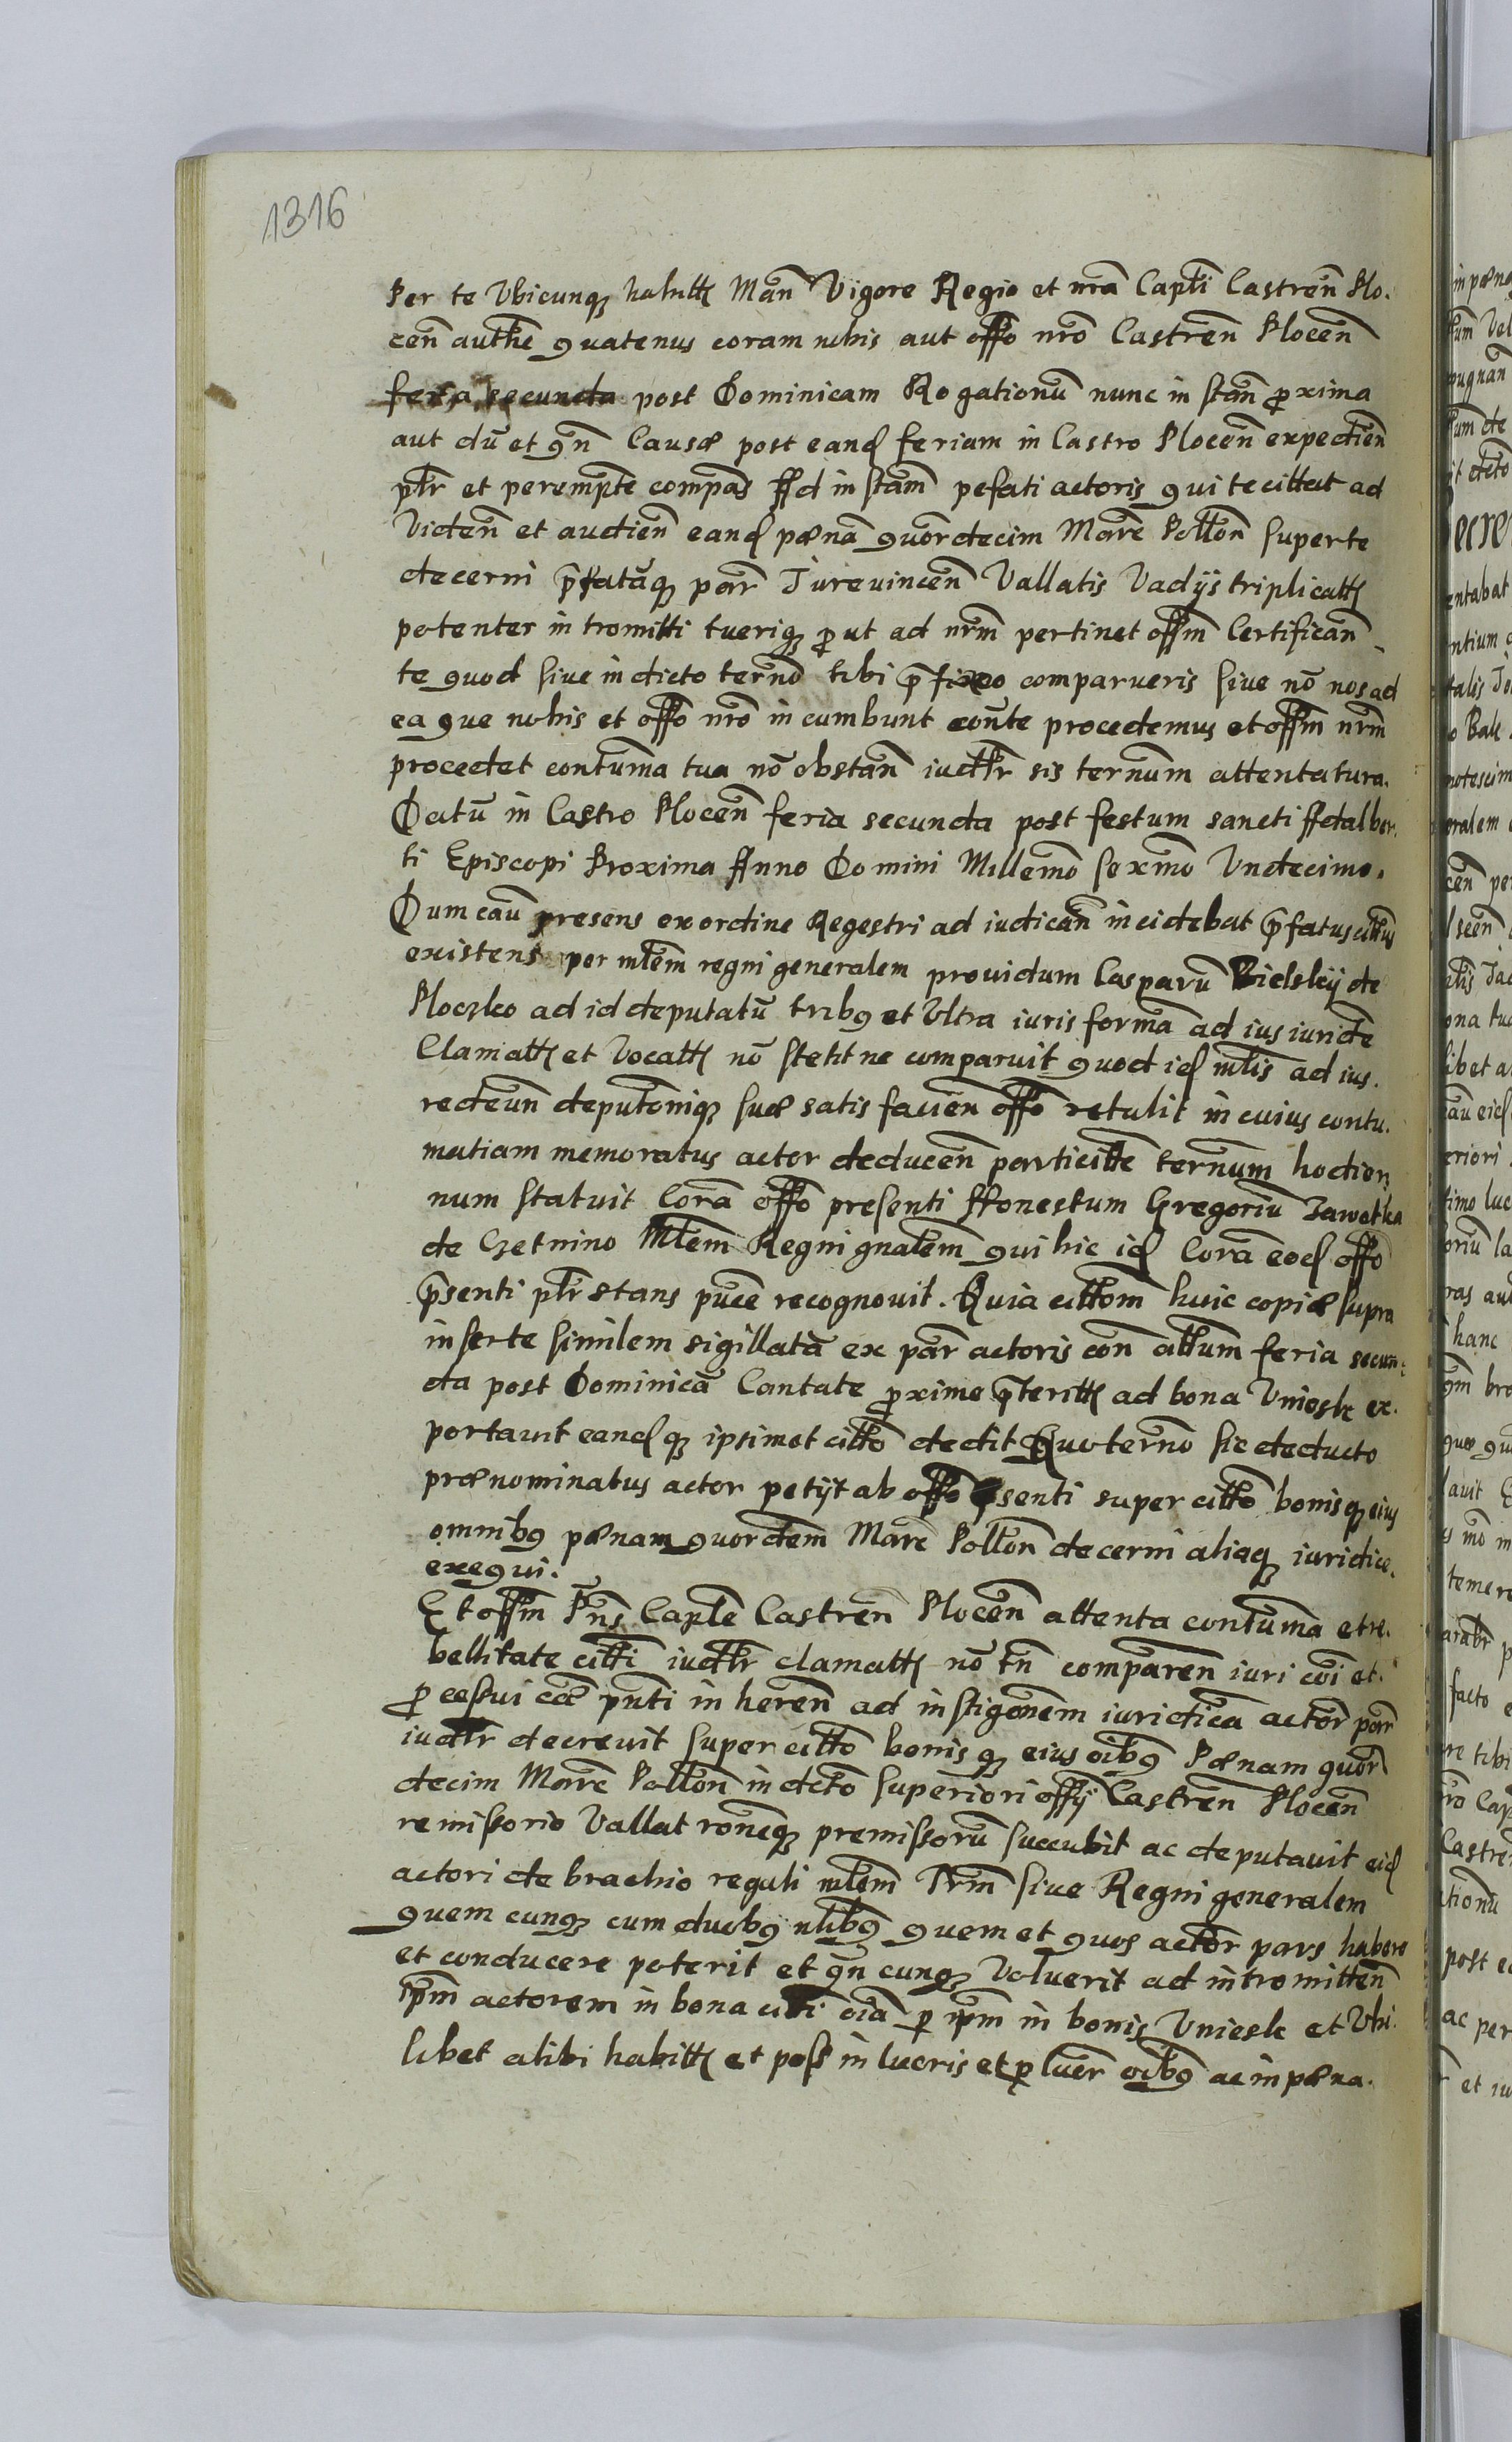 1316
Per te Vbicunq habitt Man Vigore Regio et nra Capti Castren Plo.
cen authe quatenus coram nobis aut offo nro Castren Plocen
feria secunda post Dominicam Rogationũ nunc in stan proxima
aut dũ et qn Causæ post eand feriam in Castro Plocen expedien
ptr et perempte compas Ad instam pefati actoris qui te cittat ad
Viden et audien eand pœnã quordecim Marc Pollon super te
decerni pfatãq par Jurevincen Vallatis Vadijs triplicatt
potenter intromitti tueriq prout ad nrm pertinet offm Certifican
te quod siue in dicto terno tibi pfixo comparueris siue nõ nos ad
ea que nobis et offo nro incumbunt conte procedemus et offm nrm
procedet contuma tua nõ obstan iudtr sis ternum attentatura.
Datũ in Castro Plocen feria secunda post festum sancti Adalber
ti Episcopi Proxima Anno Domini Millemo sexmo Vndecimo.
Dum cau presens ex ordine Regestri ad iudican incidebat pfatus cittus
existens per mtem regni generalem prouidum Casparũ Bielskij de
Plocsko ad id deputatũ tribq et Vltra iuris formã ad ius iuride
Clamatt et Vocatt nõ stetit ne comparuit quod id mtis ad ius.
redeun deputoniq suæ satis facien offo retulit in cuius contu.
matiam memoratus actor deducen particitte ternum hodier
num statuit Corã offo presenti Honestum Gregoriũ Jawetka
de Czetnino Mtem Regni gnalem qui hic id Corã eod offo
psenti ptr stans puce recognouit. Quia cittom huic copiæ supra
inserte similem sigillatã ex par actoris con attum feria secun
da post Dominicã Cantate proxime pteritt ad bona Vniesk ex.
portauit eandq ipsimet citto dedit Quo terno sic deducto
prænominatus actor petijt ab offo psenti super citto bonisq eius
omnibq pœnam quordem Marc Pollon decerni aliaq iuridice.
exequi.
Et offm Pns Capte Castren Plocen attenta contuma et re.
bellitate citti iudtr clamatt nõ tn comparen iuri coi et
processui ecc punti inheren ad instigonem iuridica actor par
iudtr decreuit super citto bonisq eius oibq Pœnam quor
decim Marc Pollon in dcto superiori offij Castren Plocen
remissorio Vallat ronecq premissorũ succubit ac deputauit eid
actori de brachio regali mtem Trm siue Regni generalem
quem cunq cum duobq nlibq quem et quos actor pars habere
et conducere poterit et qn cunq Voluerit ad intromitten
ipm actorem in bona citti oia p ipm in bonis Vniesk et Vbi
libet alibi habitt et poss in lucris et p lucr oibq ac in pœna.